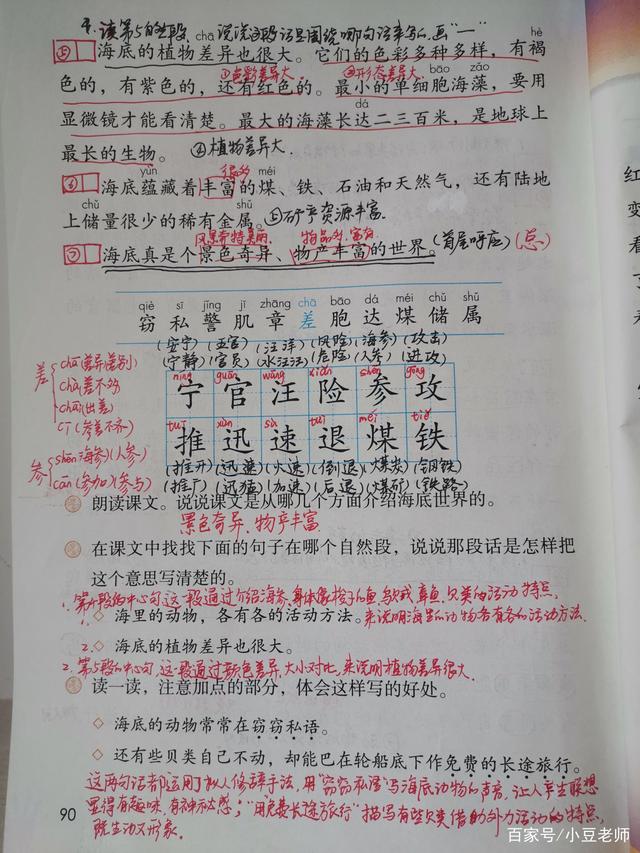 4. 读第5自然段 说说这段话是围绕哪句话来写的,画"一"
chā hè
⑤ 海底的植物差异也很大。它们的色彩多种多样,有褐
①色彩差异大 ②形态差异大 bāo zǎo
色的,有紫色的,还有红色的。最小的单细胞海藻,要用
dá
显微镜才能看清楚。最大的海藻长达二三百米,是地球上
最长的生物。 ④植物差异大.
yùn 很多 méi
⑥ 海底蕴藏着丰富的煤、铁、石油和天然气,还有陆地
chǔ shǔ
上储量很少的稀有金属。⑤矿产资源丰富.
风景奇特美丽. 物品多.富有
⑦ 海底真是个景色奇异、物产丰富的世界。(首尾呼应)(总)
qiè sī jǐng jī zhāng chā bāo dá méi chǔ shǔ
窃 私 警 肌 章 差 胞 达 煤 储 属
(安宁)(五官)(汪洋)(风险)(海参)(攻击)
(宁静)(官员)(水汪汪)(危险)(人参)(进攻)
níng guān wāng xiǎn shēn gōng
宁 官 汪 险 参 攻
tuī xùn sù tuì méi tiě
推 迅 速 退 煤 铁
(推开)(迅速)(火速)(倒退)(煤炭)(钢铁)
(推广)(迅猛)(加速)(后退)(煤矿)(铁路)
差
chā(差异)(差别)
chà(差不多)
chāi(出差)
cī(参差不齐)
参
shēn(海参)(人参)
cān(参加)(参与)
朗读课文。说说课文是从哪几个方面介绍海底世界的。
景色奇异、物产丰富
在课文中找找下面的句子在哪个自然段,说说那段话是怎样把
这个意思写清楚的。
1. 第4段的中心句,这一段通过介绍海参、身体像梭子的鱼、乌贼、章鱼、贝类的活动特点,
◇ 海里的动物,各有各的活动方法。来说明海里的动物各有各的活动方法.
2. ◇ 海底的植物差异也很大。
2. 第5段的中心句,这一段通过颜色差异,大小对比,来说明植物差异很大.
读一读,注意加点的部分,体会这样写的好处。
◇ 海底的动物常常在窃窃私语。
◇ 还有些贝类自己不动,却能巴在轮船底下作免费的长途旅行。
这两句话都运用了拟人修辞手法,用"窃窃私语"写海底动物的声音,让人产生联想
显得有趣味,有神秘感;"用免费长途旅行"描写有些贝类借助外力活动的特点,
既生动又形象.
90
百家号/小豆老师
红
变
看
了